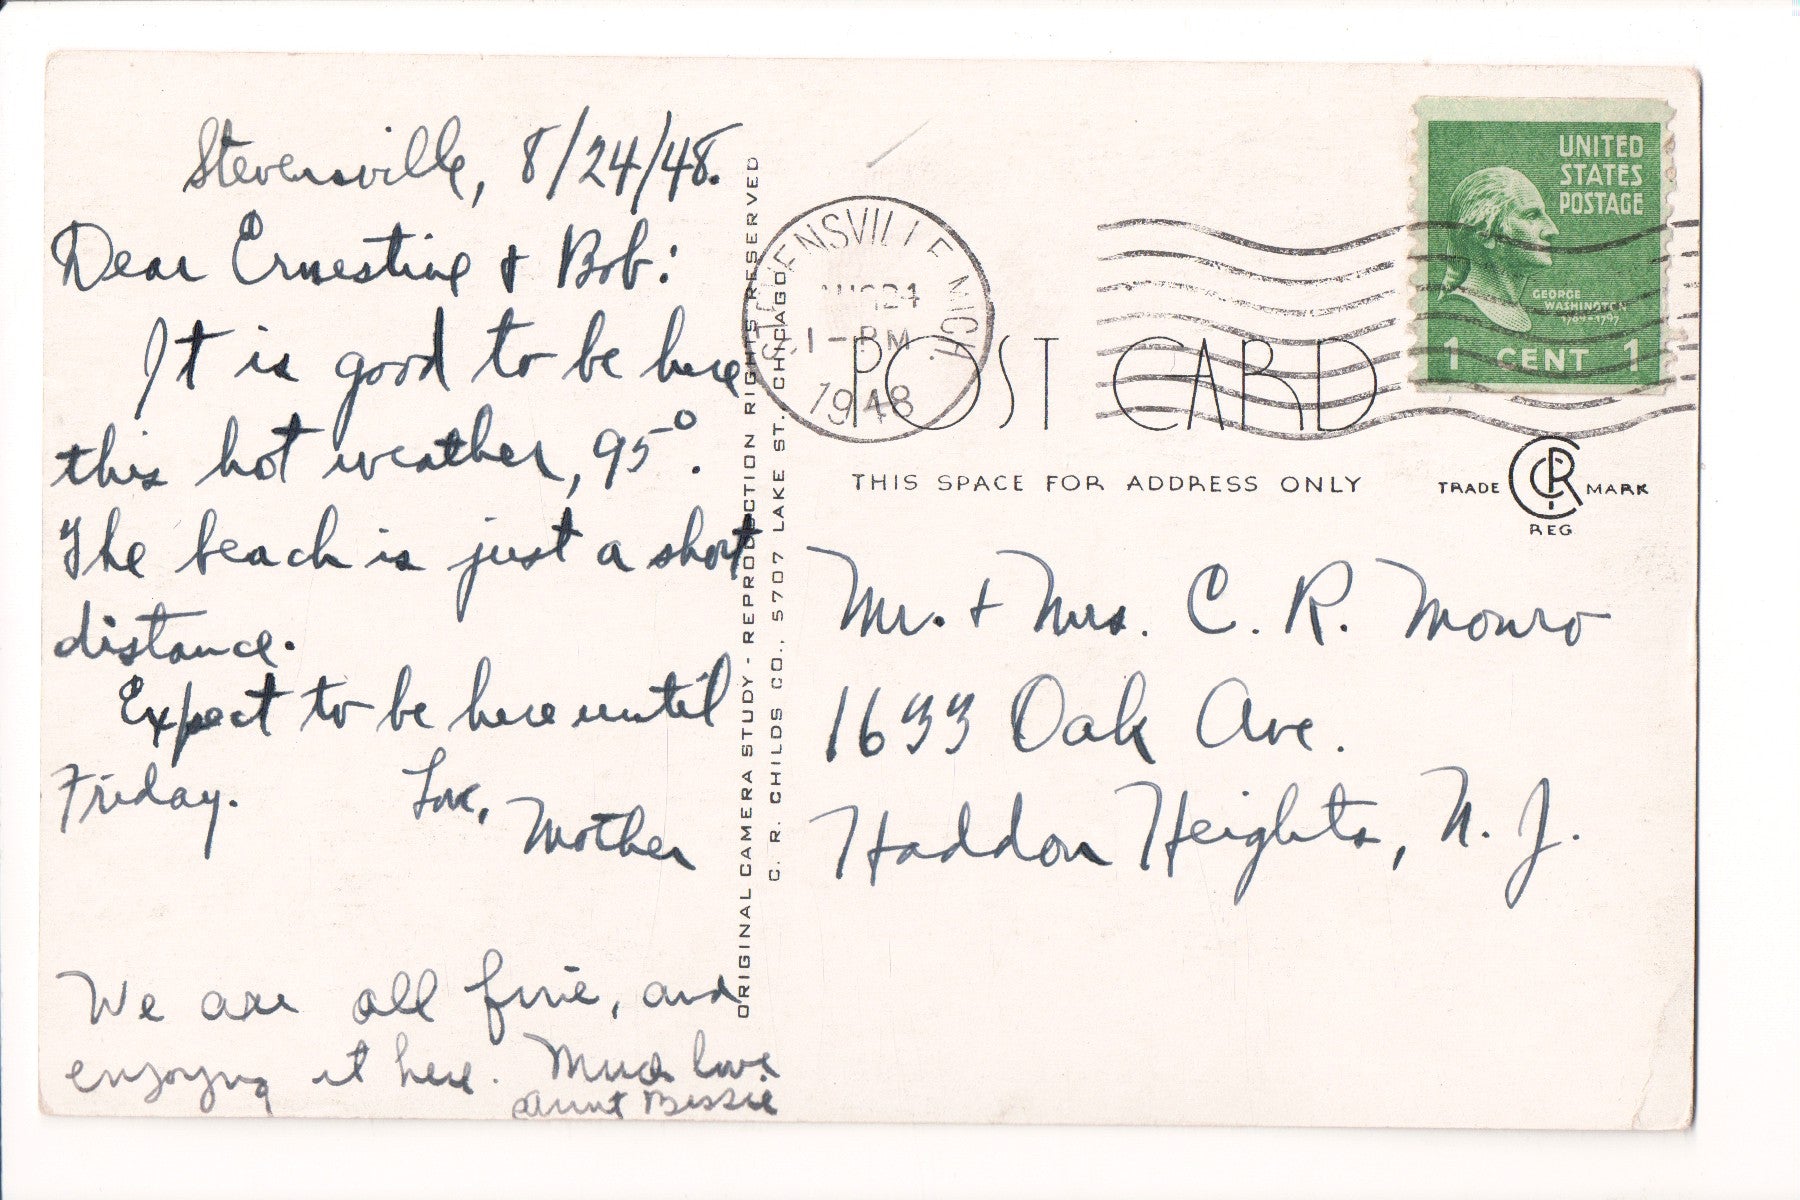 Stevensville, 8/24/48.
Dear Ernestine & Bob:
It is good to be here
this hot weather, 95°.
The beach is just a short
distance.
Expect to be here until
Friday. Love,
Mother
We are all fine, and
enjoying it here. Much love
Aunt Bessie
ORIGINAL CAMERA STUDY - REPRODUCTION RIGHTS RESERVED
C. R. CHILDS CO., 5707 LAKE ST. CHICAGO
STEVENSVILLE MICH.
AUG 24
1 - PM
1948
UNITED
STATES
POSTAGE
GEORGE
WASHINGTON
1789-1797
1 CENT 1
POST CARD
THIS SPACE FOR ADDRESS ONLY
TRADE CRC MARK
REG
Mr. & Mrs. C. R. Monro
1633 Oak Ave.
Haddon Heights, N. J.